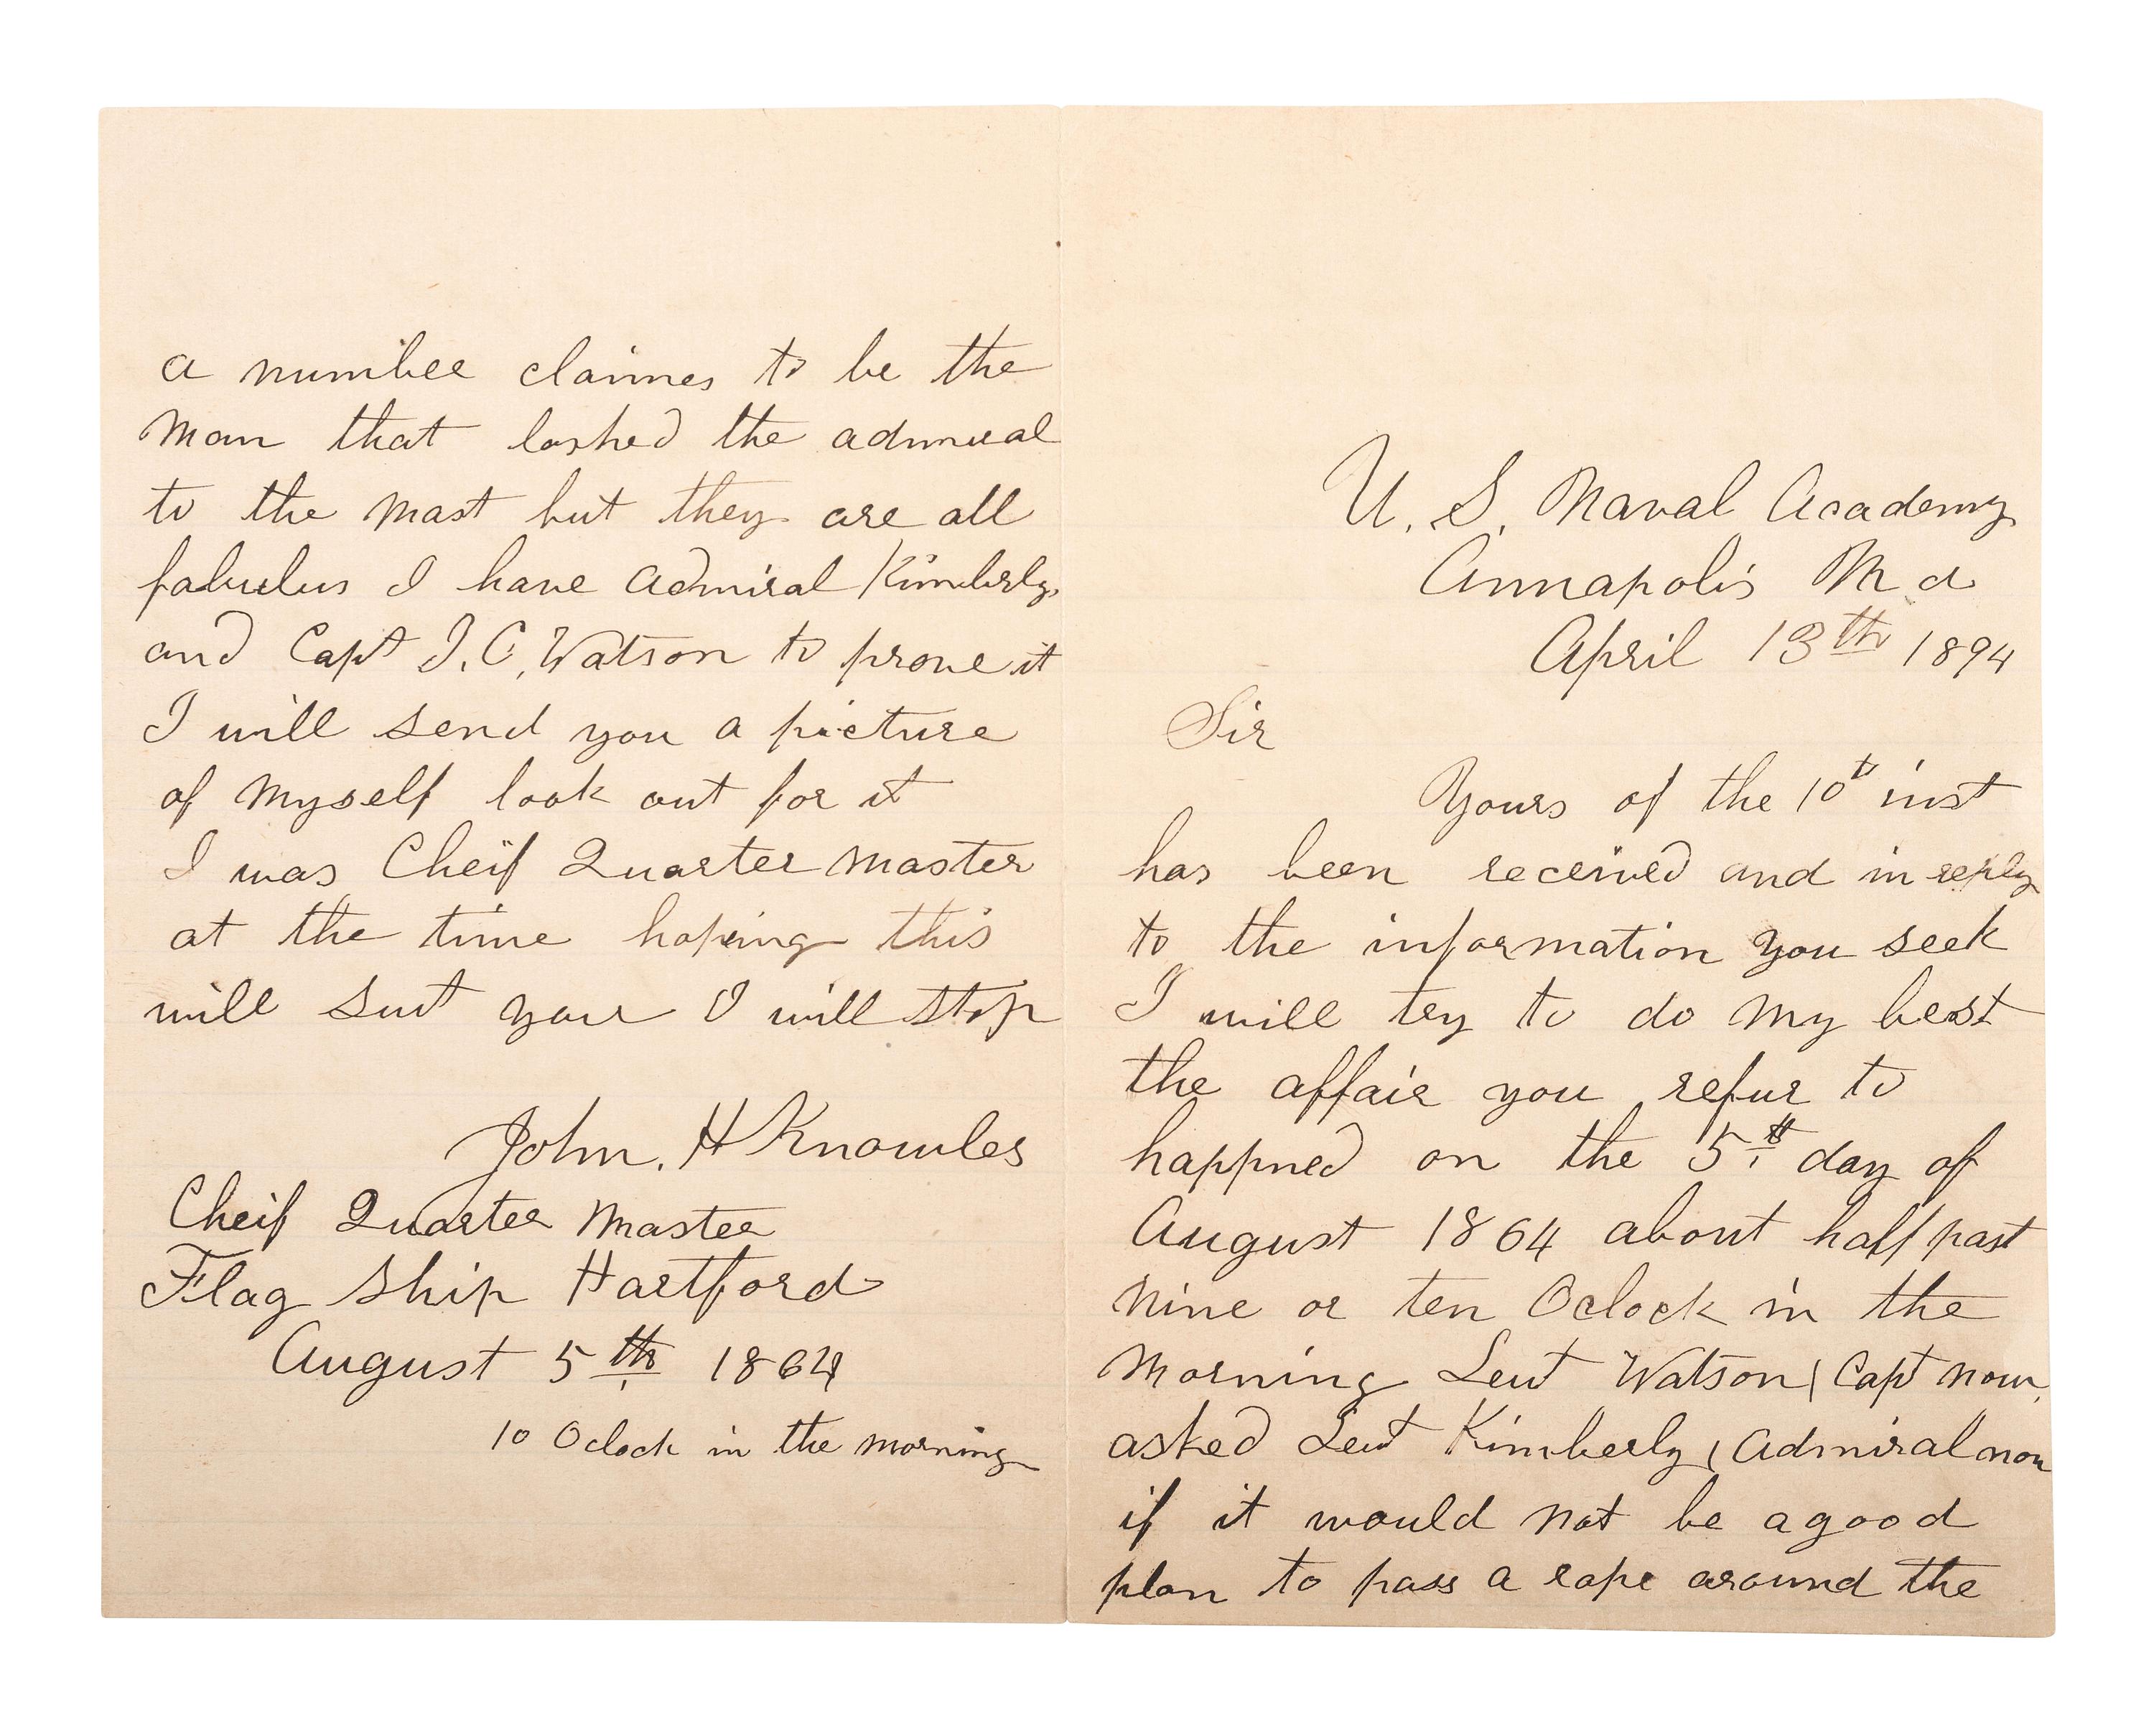 U. S. Naval Academy
Annapolis Md
April 13th 1894
Sir
Yours of the 10th inst
has been received and in reply
to the information you seek
I will try to do my best
the affair you refur to
happned on the 5th day of
August 1864 about half past
nine or ten Oclock in the
Morning Leut Watson ( Capt now
asked Leut Kimberly ( Admiral now
if it would not be a good
plan to pass a rope around the
a number claimes to be the
Man that lashed the admiral
to the Mast but they are all
fabulus I have Admiral Kimberly
and Capt J. C. Watson to prove it
I will send you a picture
of Myself look out for it
I was Cheif Quarter Master
at the time hoping this
will suit you I will stop
John. H Knowles
Cheif Quarter Master
Flag Ship Hartford
August 5th 1864
10 Oclock in the morning